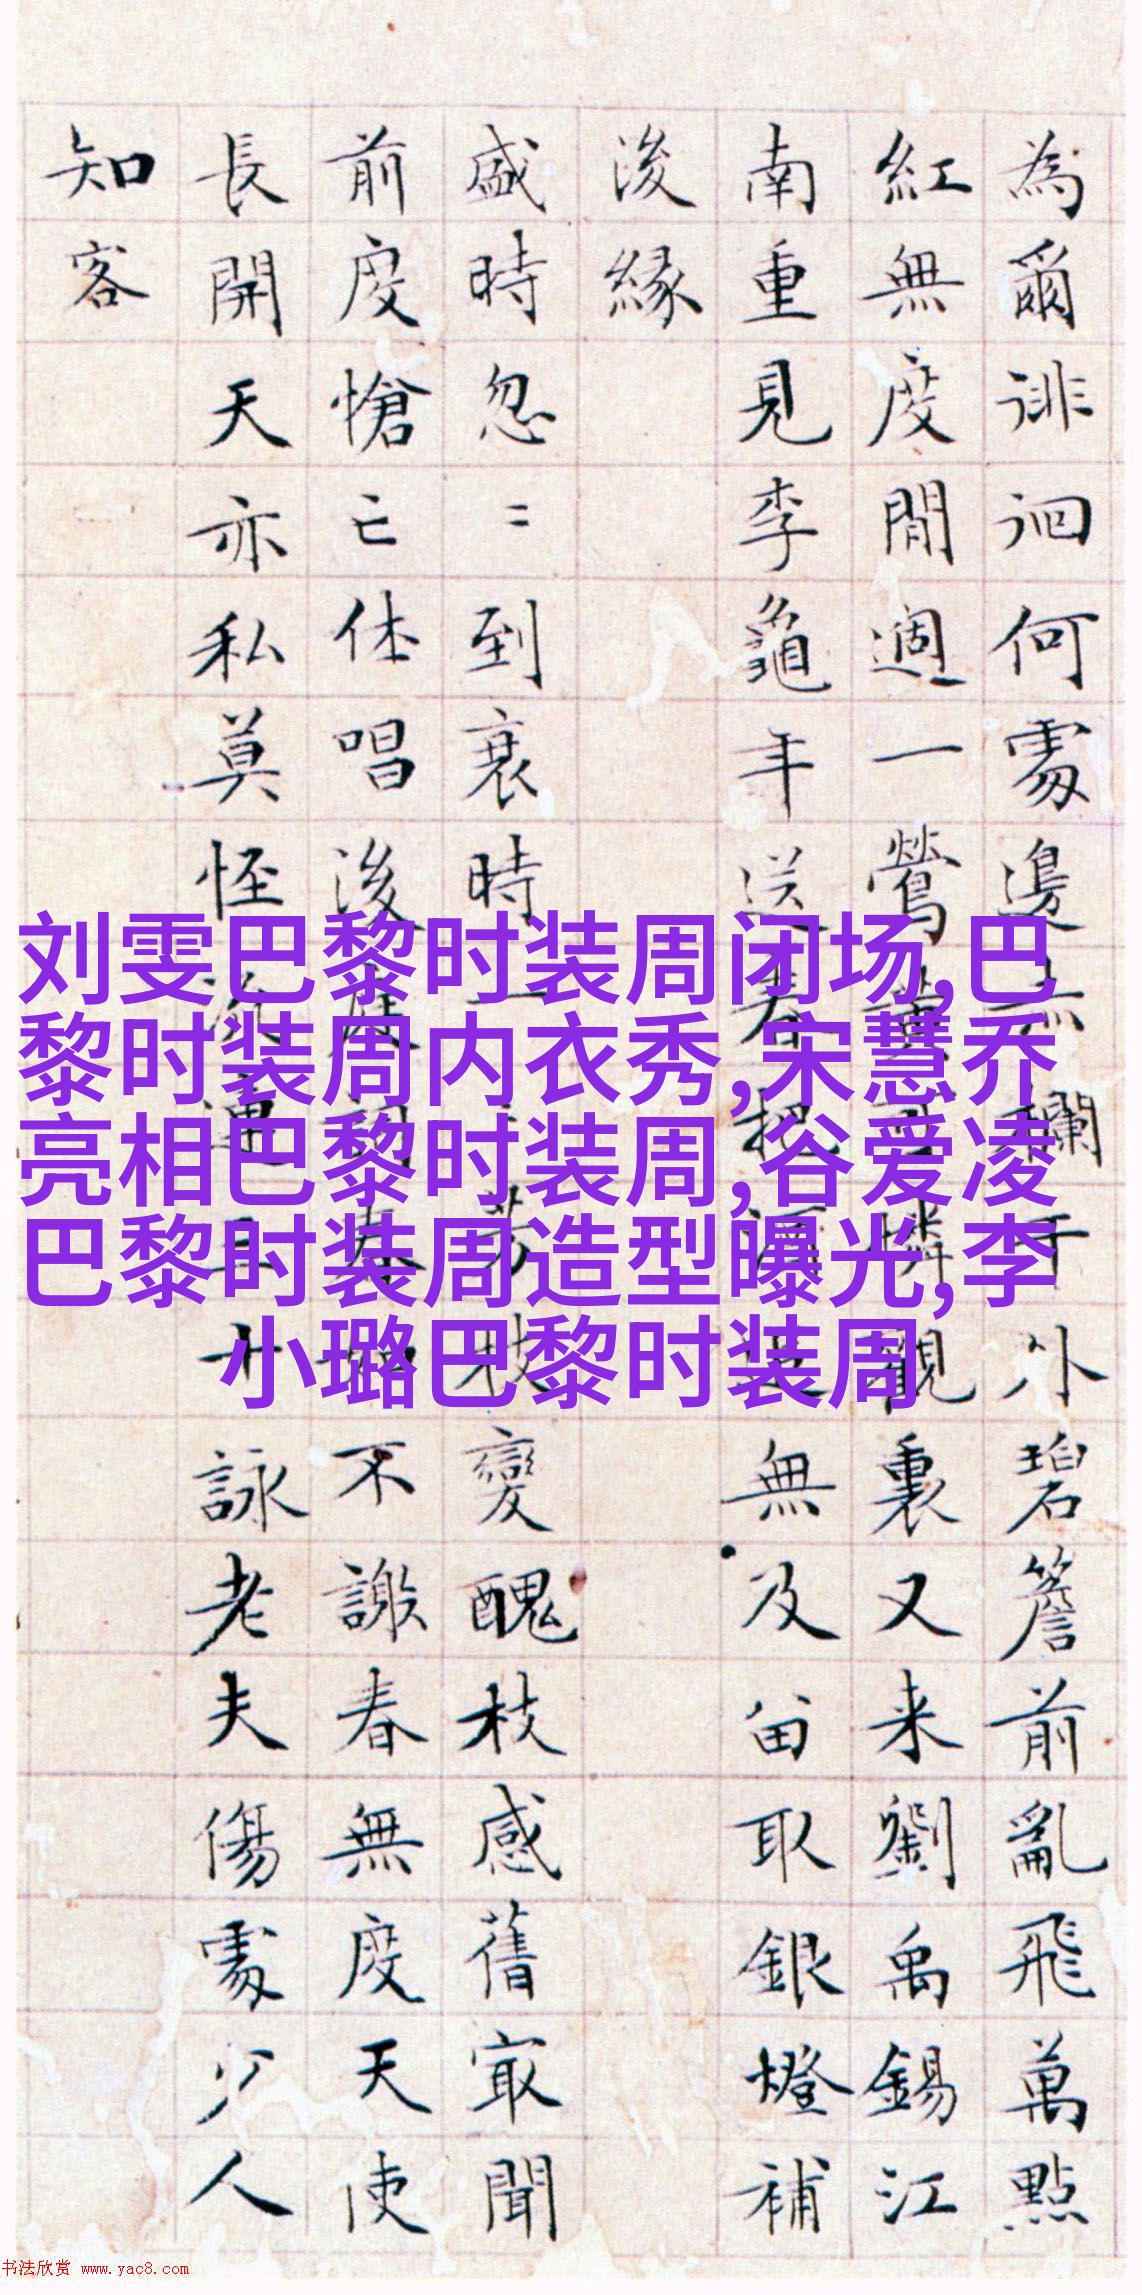 為爾徘徊何處邊赤欄干外碧簷前亂飛萬點
紅無度閒週一鶯黃可憐觀裏又来劉禹錫江
南重見李龜年送春把酒無及留取銀燈補
後緣
盛時忽〻到衰時一一芳枝變醜枝感舊最聞
前度愴亡休唱後庭詞春如不謝春無度天使
長開天亦私莫怪連三十詠老夫傷處少人
知客
刘雯巴黎时装周闭场,巴
黎时装周内衣秀,宋慧乔
亮相巴黎时装周,谷爱凌
巴黎时装周造型曝光,李
小璐巴黎时装周
书法欣赏 www.yac8.com